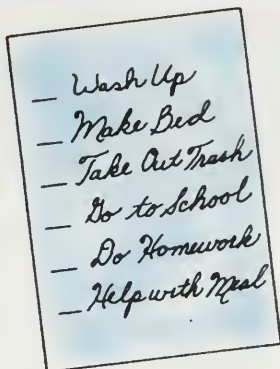 _ Wash Up
_ Make Bed
_ Take Out Trash
_ Go to School
_ Do Homework
_ Help with Meal